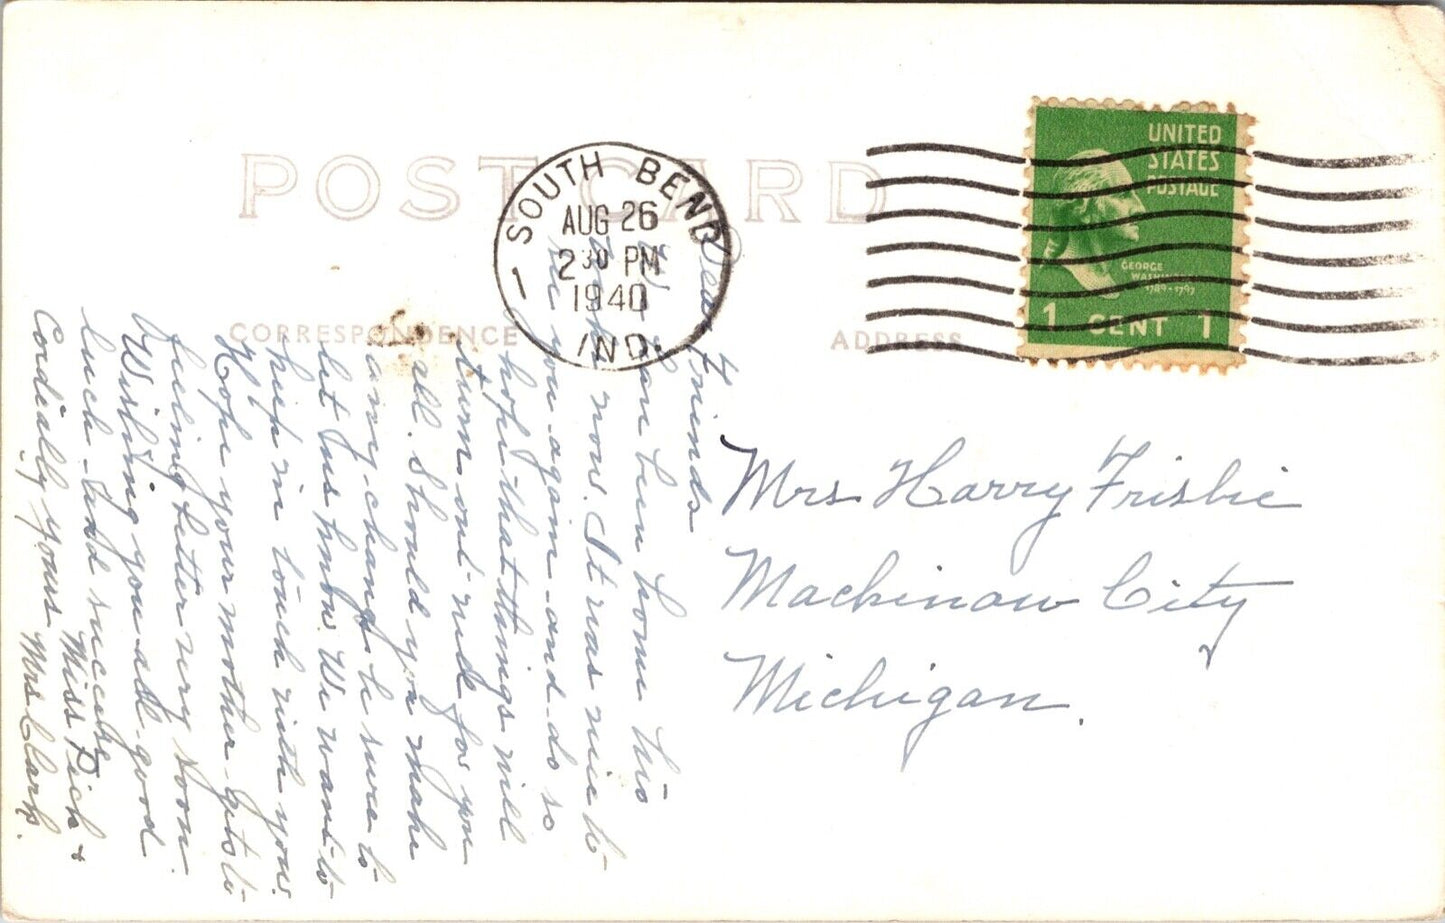 POST CARD
SOUTH BEND
AUG 26
2 30 PM
1940
IND.
UNITED
STATES
POSTAGE
GEORGE
WASHINGTON
1789-1797
1 CENT 1
CORRESPONDENCE
ADDRESS
Mrs Harry Frisbie
Mackinaw City
Michigan.
Dear Friends
We have been home two
weeks now. It was nice to
see you again - and do so
hope that things will
turn out right for you
all. Should you make
any change be sure to
let us know. We want to
keep in touch with you.
Hope your mother gets to
feeling better very soon.
Wishing you all good
luck and success
Cordially yours
Miss Dick &
Mrs Clark.